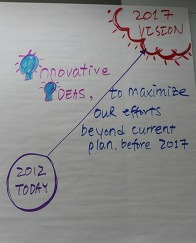 2017
VISION
Innovative
IDEAS, to maximize
our efforts
beyond current
plan, before 2017
2012
TODAY